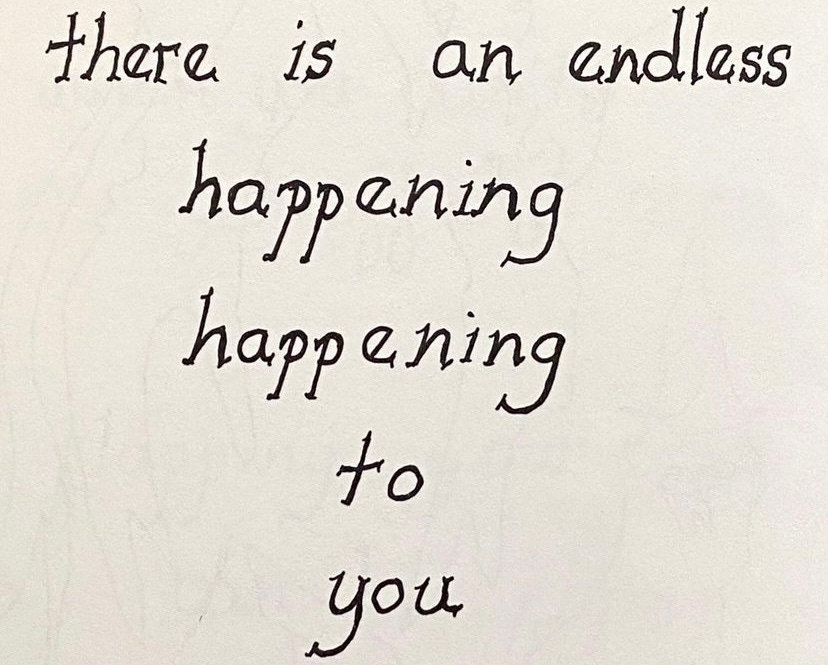 there is an endless
happening
happening
to
you